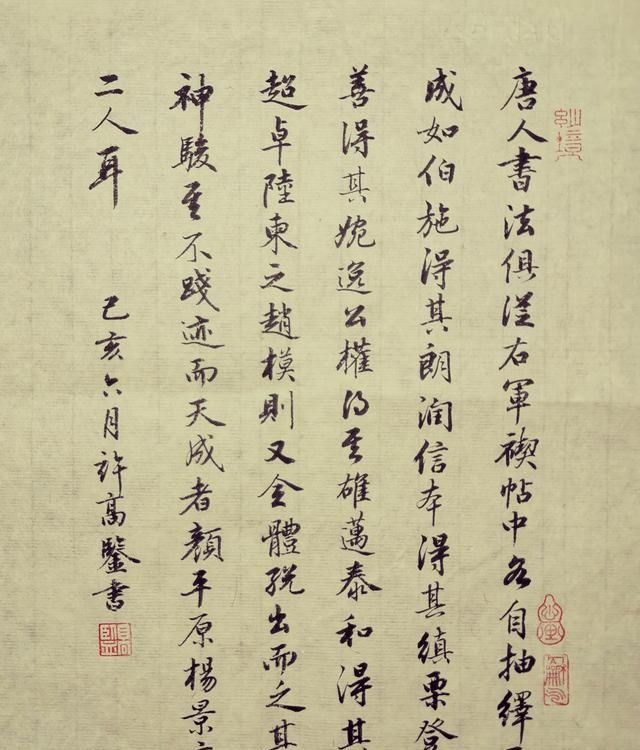 唐人書法俱從右軍禊帖中各自抽繹
成如伯施得其朗潤信本得其縝栗登
善得其婉逸公權得其雄邁泰和得其
超卓陸柬之趙模則又全體脱出而乏其
神駿其不踐迹而天成者顏平原楊景
二人耳
己亥六月許高鑒書